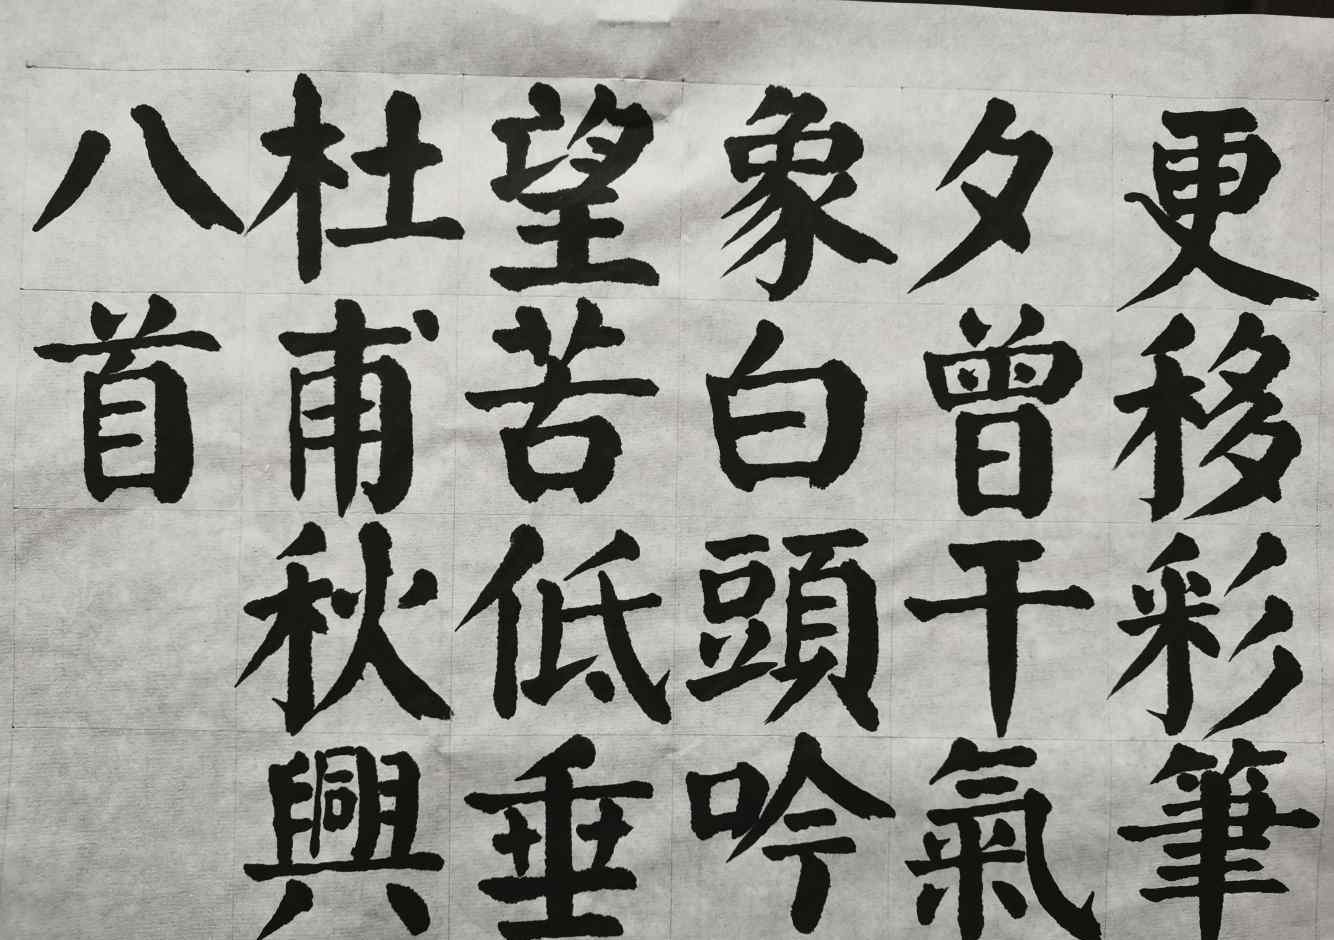 更移彩筆
夕曾干氣
象白頭吟
望苦低垂
杜甫秋興
八首